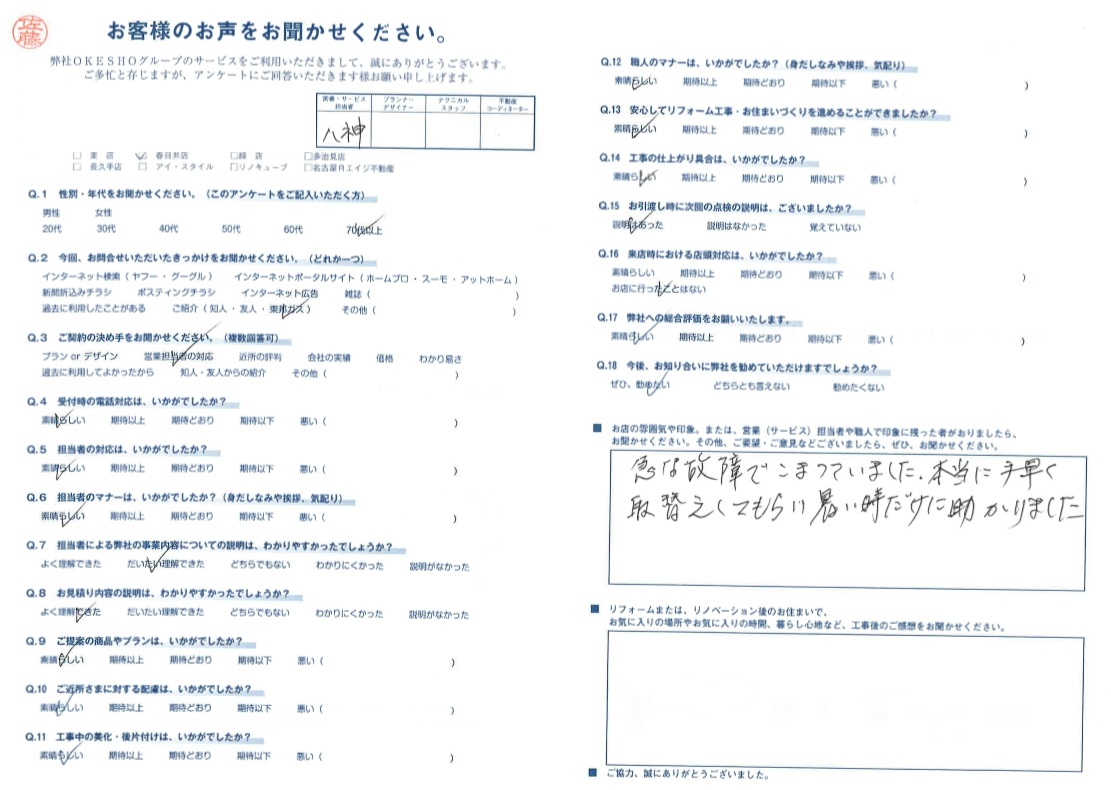 佐藤
お客様のお声をお聞かせください。
弊社OKESHOグループのサービスをご利用いただきまして、誠にありがとうございます。
ご多忙と存じますが、アンケートにご回答いただきます様お願い申し上げます。
営業・サービス担当者 プランナーデザイナー テクニカルスタッフ 不動産コーディネーター
八神
□ 東 店 ☑ 春日井店 □緑 店 □多治見店
□ 長久手店 □ アイ・スタイル □リノキューブ □名古屋Rエイジ不動産
Q.1 性別・年代をお聞かせください。（このアンケートをご記入いただく方）
男性 女性
20代 30代 40代 50代 60代 70代以上
Q.2 今回、お問合せいただいたきっかけをお聞かせください。（どれか一つ）
インターネット検索（ ヤフー ・ グーグル ） インターネットポータルサイト（ ホームプロ ・ スーモ ・ アットホーム ）
新聞折込みチラシ ポスティングチラシ インターネット広告 雑誌（ ）
過去に利用したことがある ご紹介（ 知人 ・ 友人 ・ 東邦ガス ） その他（ ）
Q.3 ご契約の決め手をお聞かせください。（複数回答可）
プラン or デザイン 営業担当者の対応 近所の評判 会社の実績 価格 わかり易さ
過去に利用してよかったから 知人・友人からの紹介 その他（ ）
Q.4 受付時の電話対応は、いかがでしたか？
素晴らしい 期待以上 期待どおり 期待以下 悪い（ ）
Q.5 担当者の対応は、いかがでしたか？
素晴らしい 期待以上 期待どおり 期待以下 悪い（ ）
Q.6 担当者のマナーは、いかがでしたか？（身だしなみや挨拶、気配り）
素晴らしい 期待以上 期待どおり 期待以下 悪い（ ）
Q.7 担当者による弊社の事業内容についての説明は、わかりやすかったでしょうか？
よく理解できた だいたい理解できた どちらでもない わかりにくかった 説明がなかった
Q.8 お見積り内容の説明は、わかりやすかったでしょうか？
よく理解できた だいたい理解できた どちらでもない わかりにくかった 説明がなかった
Q.9 ご提案の商品やプランは、いかがでしたか？
素晴らしい 期待以上 期待どおり 期待以下 悪い（ ）
Q.10 ご近所さまに対する配慮は、いかがでしたか？
素晴らしい 期待以上 期待どおり 期待以下 悪い（ ）
Q.11 工事中の美化・後片付けは、いかがでしたか？
素晴らしい 期待以上 期待どおり 期待以下 悪い（ ）
Q.12 職人のマナーは、いかがでしたか？（身だしなみや挨拶、気配り）
素晴らしい 期待以上 期待どおり 期待以下 悪い（ ）
Q.13 安心してリフォーム工事・お住まいづくりを進めることができましたか？
素晴らしい 期待以上 期待どおり 期待以下 悪い（ ）
Q.14 工事の仕上がり具合は、いかがでしたか？
素晴らしい 期待以上 期待どおり 期待以下 悪い（ ）
Q.15 お引渡し時に次回の点検の説明は、ございましたか？
説明はあった 説明はなかった 覚えていない
Q.16 来店時における店頭対応は、いかがでしたか？
素晴らしい 期待以上 期待どおり 期待以下 悪い（ ）
お店に行ったことはない
Q.17 弊社への総合評価をお願いいたします。
素晴らしい 期待以上 期待どおり 期待以下 悪い（ ）
Q.18 今後、お知り合いに弊社を勧めていただけますでしょうか？
ぜひ、勧めたい どちらとも言えない 勧めたくない
■ お店の雰囲気や印象。または、営業（サービス）担当者や職人で印象に残った者がおりましたら、
お聞かせください。その他、ご要望・ご意見などございましたら、ぜひ、お聞かせください。
急な故障でこまっていました。本当に手早く
取替えしてもらい暑い時だけに助かりました
■ リフォームまたは、リノベーション後のお住まいで、
お気に入りの場所やお気に入りの時間、暮らし心地など、工事後のご感想をお聞かせください。
■ ご協力、誠にありがとうございました。